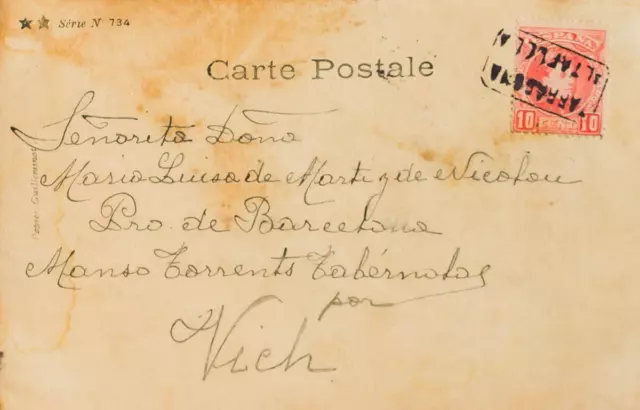 Série N 734
ESPAÑA
TARRAGONA
ALTAFULLA
Carte Postale
10 10
Señorita Doña
Maria Luisa de Marti y de Nicolau
Pro. de Barcelona
Manso Torrents Tabérnolas
por
Vich